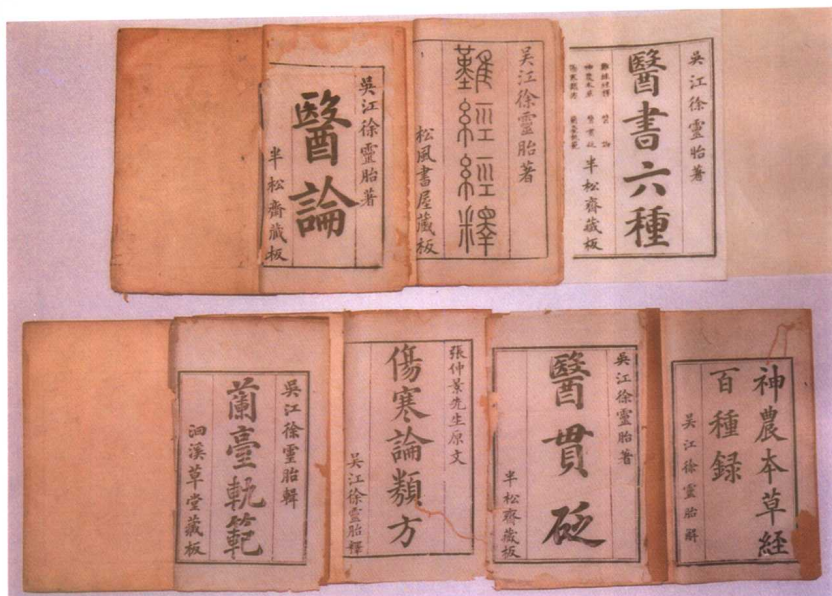 吳江徐靈胎著
醫書六種
半松齋藏板
吳江徐靈胎著
難經經釋
松風書屋藏板
吳江徐靈胎著
醫論
半松齋藏板
神農本草經
百種録
吳江徐靈胎解
吳江徐靈胎著
醫貫砭
半松齋藏板
張仲景先生原文
傷寒論類方
吳江徐靈胎釋
吳江徐靈胎輯
蘭臺軌範
洄溪草堂藏板